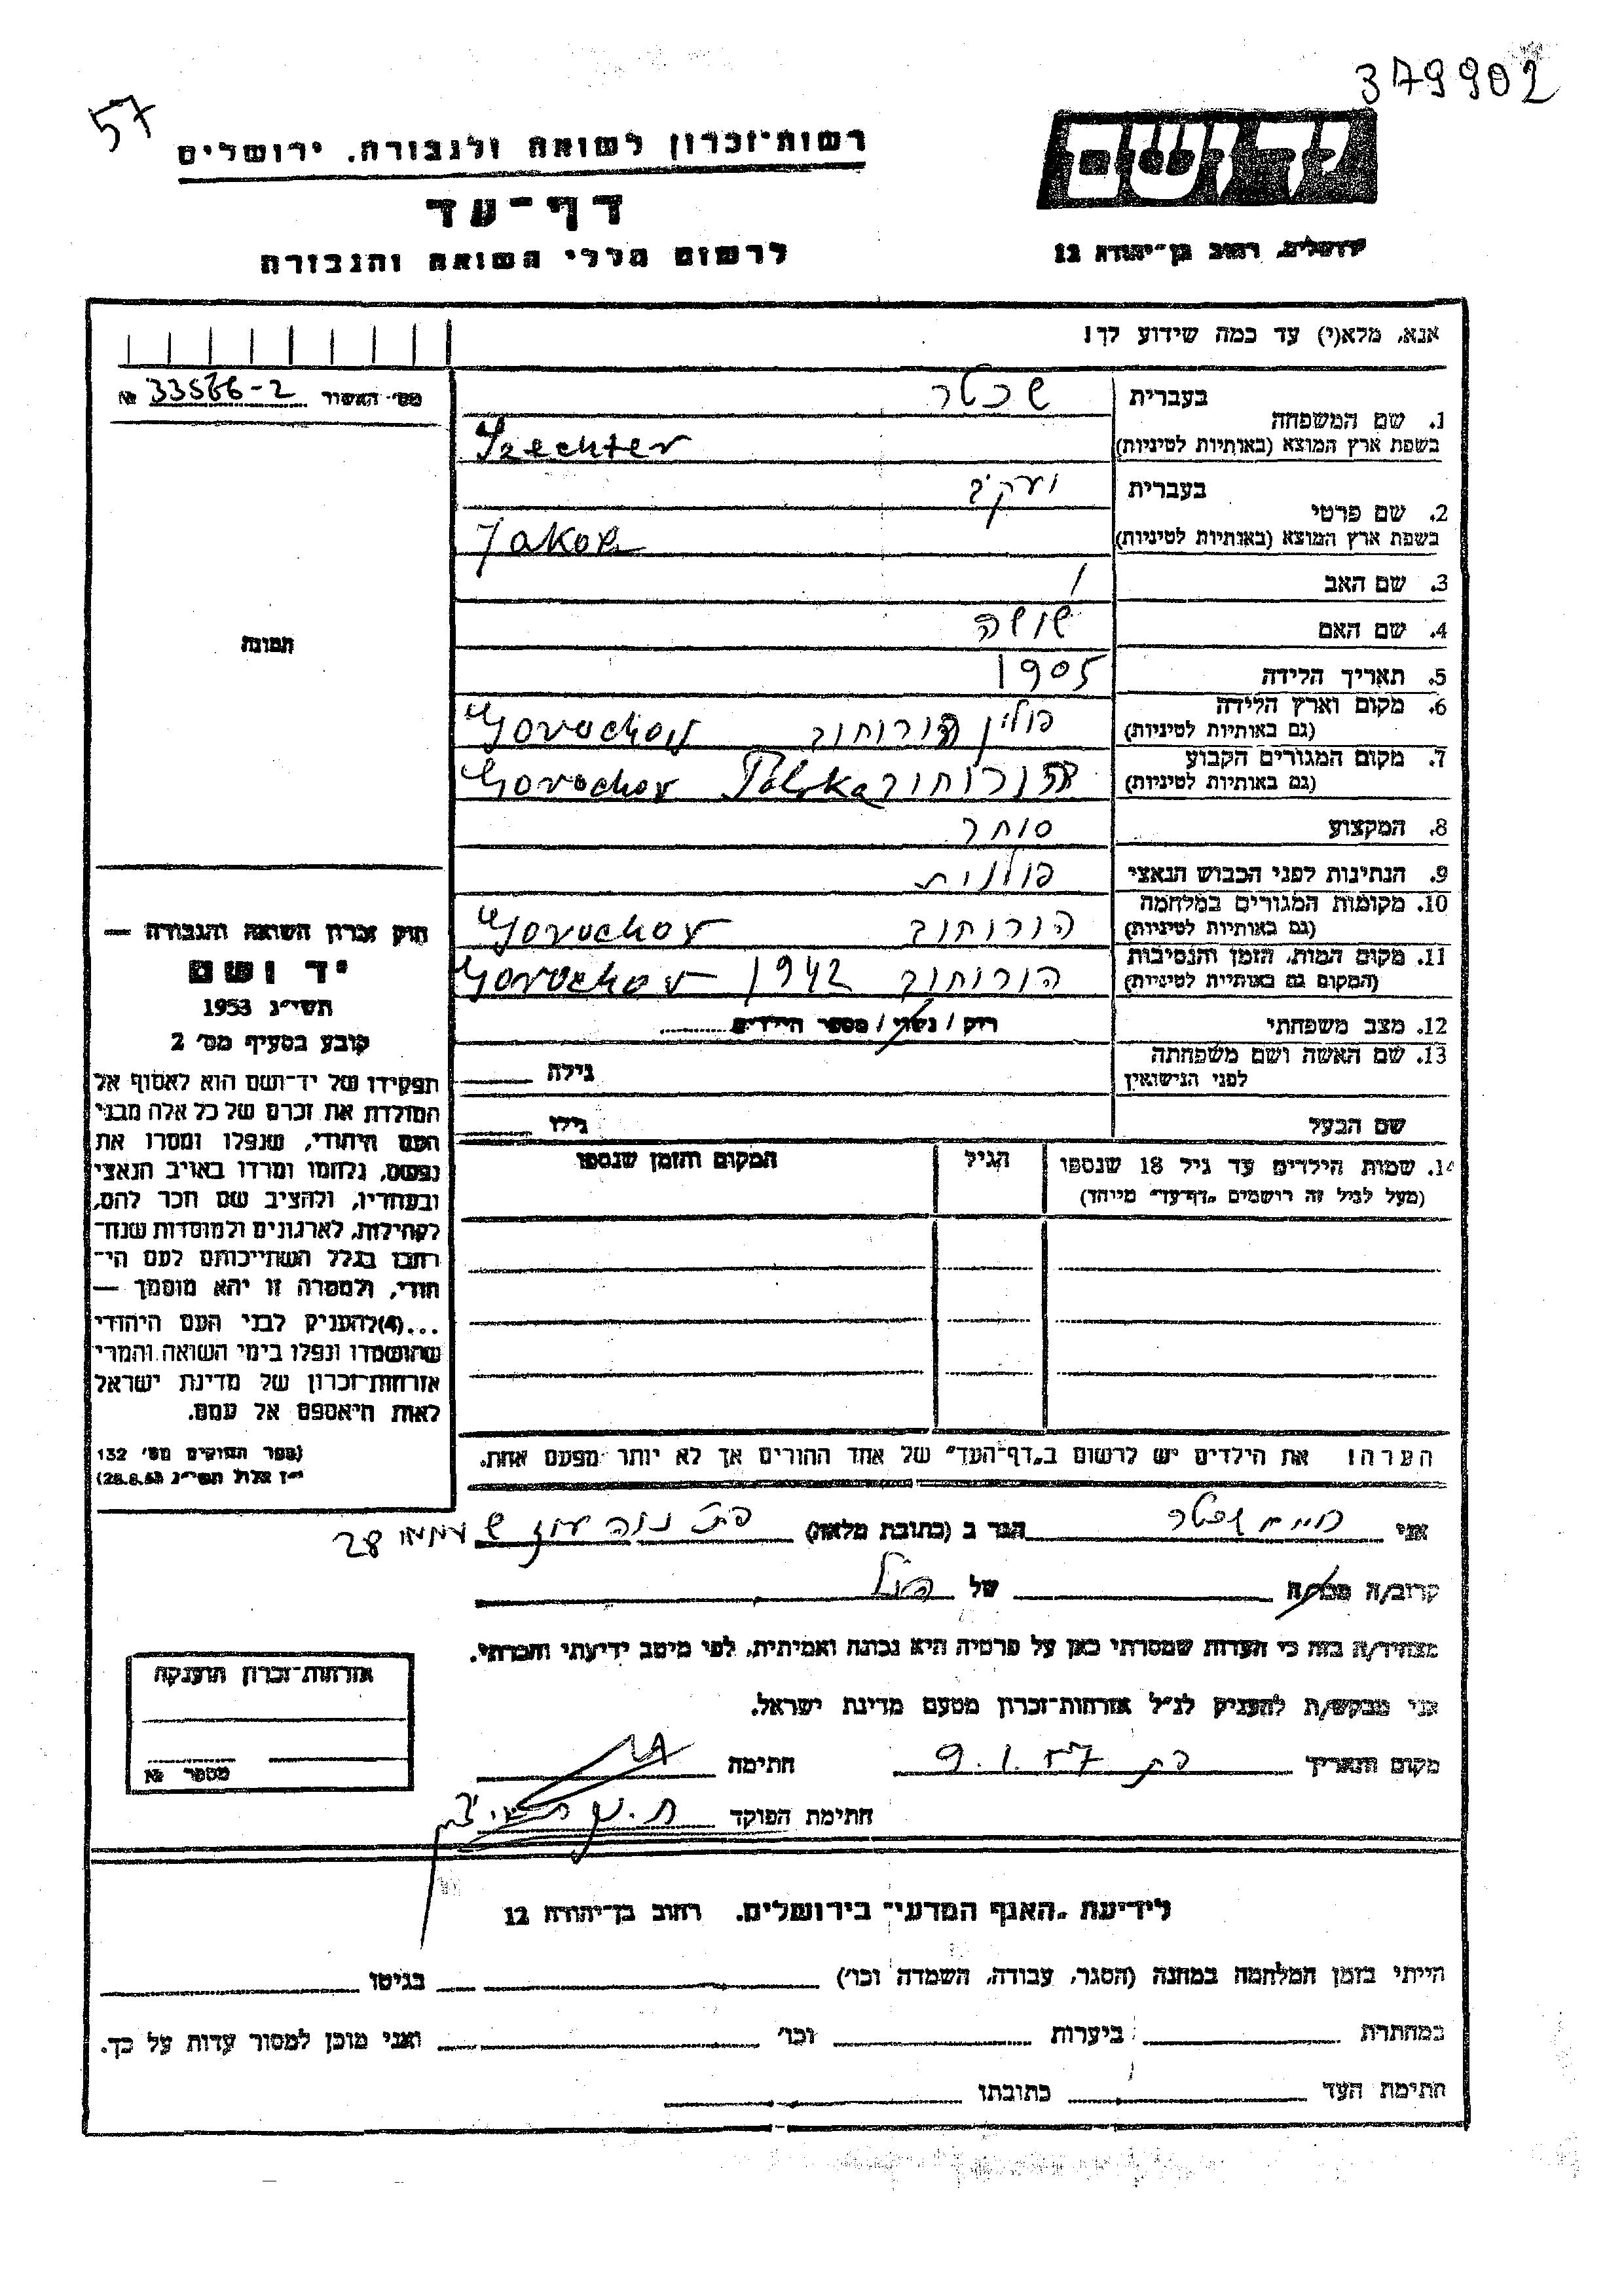 379902
57
יד ושם
רשות־זכרון לשואה ולגבורה, ירושלים
ירושלים, רחוב בן־יהודה 12
דף־עד
לרשום חללי השואה והגבורה
אנא, מלא(י) עד כמה שידוע לך!
מס׳ האשור № 33566-2
בעברית שכטר
1. שם המשפחה
בשפת ארץ המוצא (באותיות לטיניות) Szechter
בעברית יעקב
2. שם פרטי
בשפת ארץ המוצא (באותיות לטיניות) Jakob
3. שם האב /
4. שם האם שושה
תמונה
5. תאריך הלידה 1905
6. מקום וארץ הלידה פולין הורוחוב Gorochov
(גם באותיות לטיניות)
7. מקום המגורים הקבוע הורוחוב Polska Gorochov
(גם באותיות לטיניות)
8. המקצוע סוחר
9. הנתינות לפני הכבוש הנאצי פולנית
10. מקומות המגורים במלחמה הורוחוב Gorochov
(גם באותיות לטיניות)
11. מקום המות, הזמן והנסיבות הורוחוב 1942 Gorochov
(המקום גם באותיות לטיניות)
12. מצב משפחתי רוק / נשוי / מספר הילדים
13. שם האשה ושם משפחתה
לפני הנישואין גילה
שם הבעל גילו
14. שמות הילדים עד גיל 18 שנספו הגיל המקום והזמן שנספו
(מעל לגיל זה רושמים „דף־עד״ מיוחד)
חוק זכרון השואה והגבורה —
יד ושם
תשי״ג 1953
קובע בסעיף מס׳ 2
תפקידו של יד־ושם הוא לאסוף אל
המולדת את זכרם של כל אלה מבני
העם היהודי, שנפלו ומסרו את
נפשם, נלחמו ומרדו באויב הנאצי
ובעוזריו, ולהציב שם וזכר להם,
לקהילות, לארגונים ולמוסדות שנח־
רבו בגלל השתייכותם לעם הי־
הודי, ולמטרה זו יהא מוסמך —
...(4) להעניק לבני העם היהודי
שהושמדו ונפלו בימי השואה והמרי
אזרחות־זכרון של מדינת ישראל
לאות היאספם אל עמם.
(ספר החוקים מס׳ 132
י״ז אלול תשי״ג 28.8.53)
הערה! את הילדים יש לרשום ב„דף־העד״ של אחד ההורים אך לא יותר מפעם אחת.
אני חיים שכטר הגר ב (כתובת מלאה) פת נוה עוז 28
קרוב/ה מכר/ה של הנ״ל
מצהיר/ה בזה כי העדות שמסרתי כאן על פרטיה היא נכונה ואמיתית, לפי מיטב ידיעתי והכרתי.
אני מבקש/ת להעניק לנ״ל אזרחות־זכרון מטעם מדינת ישראל.
מקום ותאריך פת 9.1.57 חתימה
חתימת הפוקד
אזרחות־זכרון הוענקה
מספר №
לידיעת „האגף המדעי״ בירושלים, רחוב בן־יהודה 12
הייתי בזמן המלחמה במחנה (הסגר, עבודה, השמדה וכו׳) בגיטו
במחתרת ביערות וכו׳ ואני מוכן למסור עדות על כך.
חתימת העד כתובתו